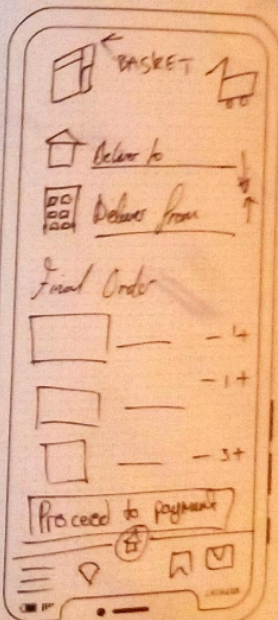 BASKET
Deliver to
Deliver from
Final Order
- 4
- 1 +
- 3 +
Proceed to payment